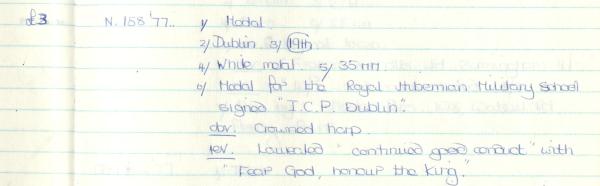 £3 N. 158'77. 1/ Medal
2/ Dublin 3/ 19th
4/ White metal 5/ 35mm
6/ Medal for the Royal Hibernian Military School
signed "I.C.P. Dublin".
obv. Crowned harp.
rev. Laurelled "continued good conduct" with
"Fear God, honour the King."